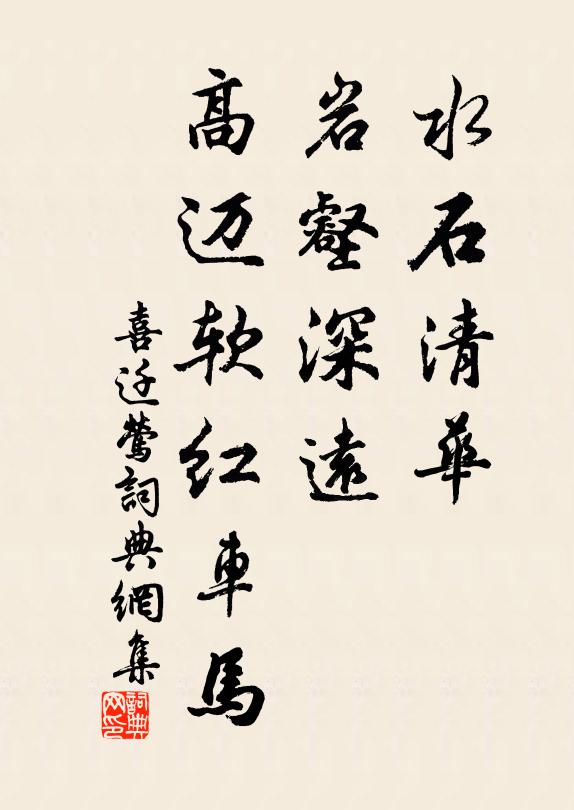 水石清華
岩壑深遠
高迈软红車馬
喜迁莺詞典網集
詞典网印